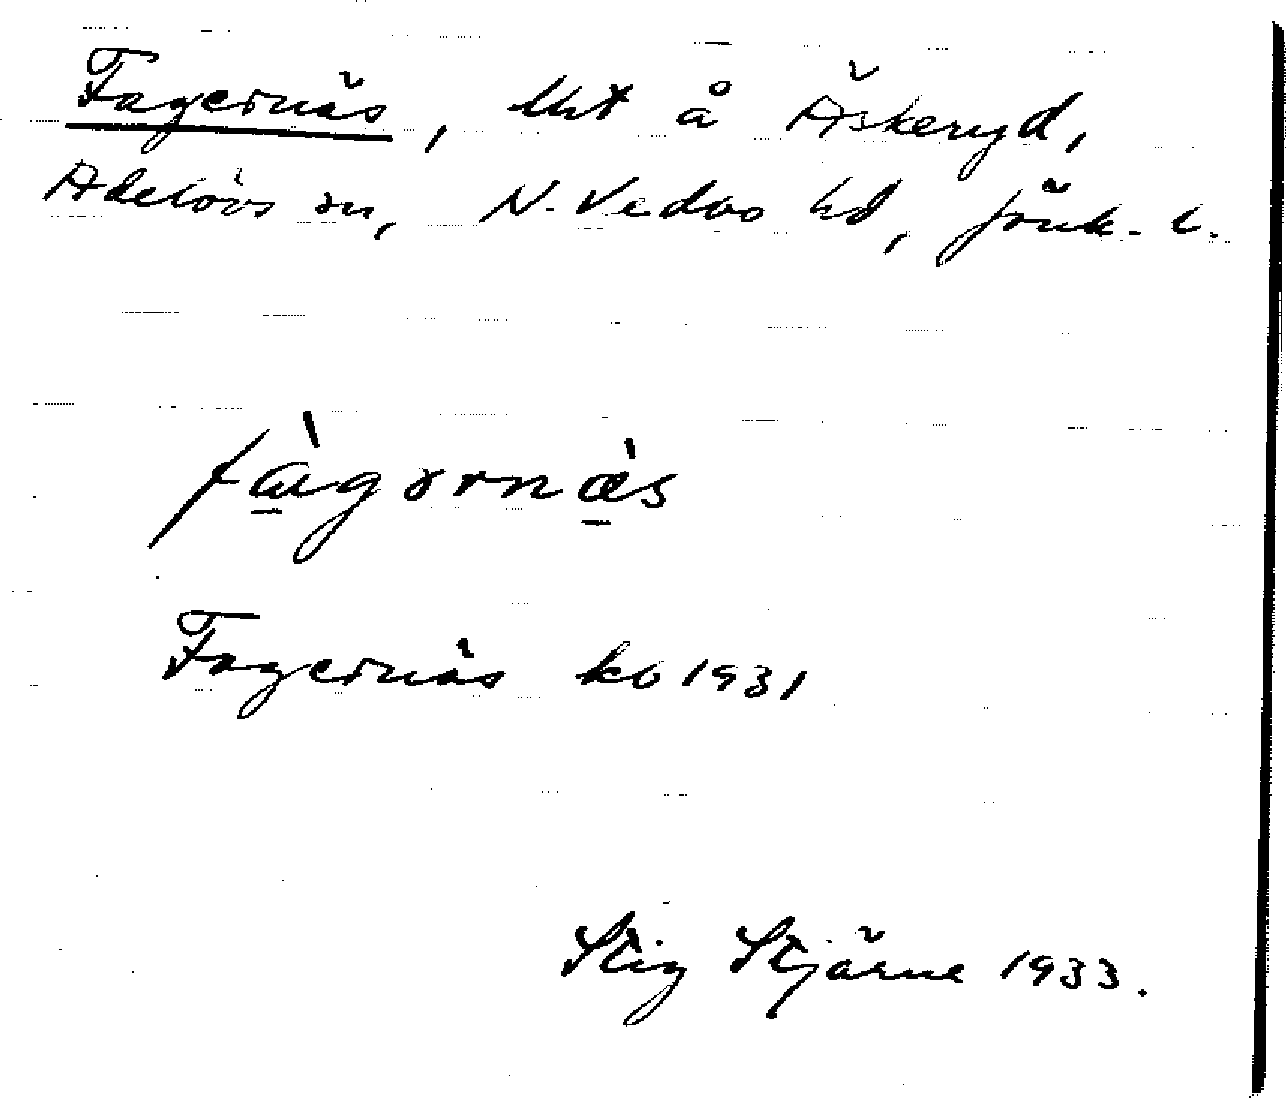 Fagernäs, lht å Äskeryd,
Adelövs sn, N. Vedbo hd, Jönk. l.
fàgərnàs
Fagernäs kb 1931
Stig Stjärne 1933.